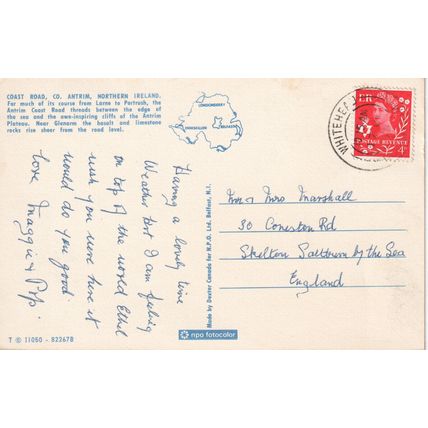 COAST ROAD, CO. ANTRIM, NORTHERN IRELAND.
For much of its course from Larne to Portrush, the
Antrim Coast Road threads between the edge of
the sea and the awe-inspiring cliffs of the Antrim
Plateau. Near Glenarm the basalt and limestone
rocks rise sheer from the road level.
LONDONDERRY
ENNISKILLEN
BELFAST
Having a lovely time
Weather but I am feeling
on top of the world Ethel
wish you were here it
would do you good
love Maggie & Pop
T © 11050 - 82267B
Made by Dexter Canada for N.P.O. Ltd. Belfast, N.I.
npo fotocolor
WHITEHEA
ER
POSTAGE REVENUE
4D
Mr & Mrs Marshall
30 Coniston Rd
Skelton Saltburn by the Sea
England